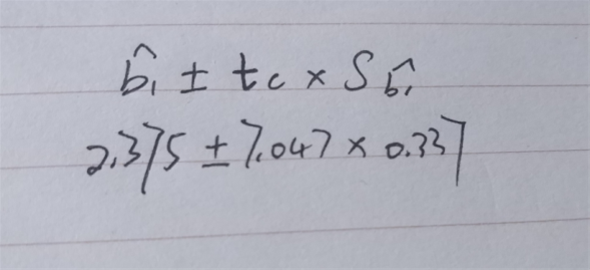 b̂₁ ± tc × S b̂₁
2.375 ± 7.047 × 0.337